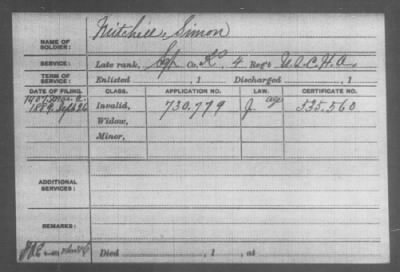 NAME OF SOLDIER: Mitchell, Simon
SERVICE: Late rank, Co. K, 4 Reg't U.S.C.H.A.
TERM OF SERVICE: Enlisted , 1 Discharged , 1
DATE OF FILING. CLASS. APPLICATION NO. LAW. CERTIFICATE NO.
1889, Sept 26 Invalid, 730.779 J 535.560
Widow,
Minor,
ADDITIONAL SERVICES:
REMARKS:
Died , 1 , at